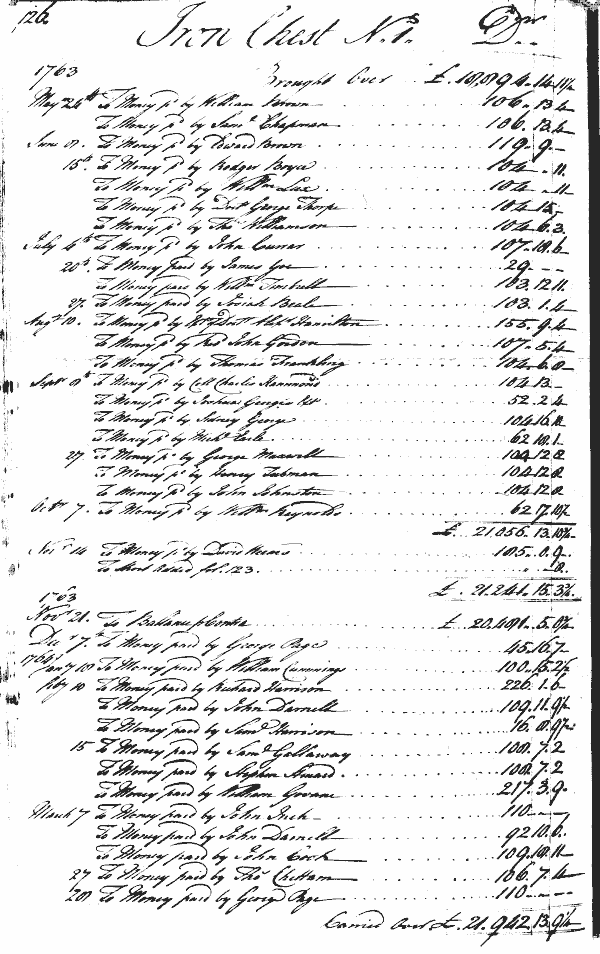 126
Iron Chest No. 1. Dr.
1763 Brought Over £. 18,894.14.11½
May 24th To Money pd by William Brown 106.13.4
To Money pd by Saml Chapman 106.13.4
June 8. To Money pd by Edward Brown 119.9–
15th To Money pd by Rodger Boyce 104.–.11.
To Money pd by Willm Lux 104.–.11
To Money pd by Doctr George Thorpe 104.15.
To Money pd by Thos Williamson 104.6.3.
July 4th To Money pd by John Currer 107.18.6
20th To Money paid by James Gee 29.–.–
To Money paid by Willm Timbrell 103.12.11
27. To Money paid by Josiah Beale 103.1.4
Augt 10. To Money pd by Doctr Alexr Hamilton 155.9.4
To Money pd by Revd John Gordon 107.5.4
To Money pd by Thomas Frankling 104.6.8
Septr 8th To Money pd by Coll Charles Hammond 104.13.–
To Money pd by Joshua George 52.2.4
To Money pd by Sidney George 104.16.11
To Money pd by Michl Earle 62.18.1
27 To Money pd by George Maxwell 104.12.8
To Money pd by Henry Tubman 104.12.8
To Money pd by John Johnston 104.12.8
Octr 7. To Money pd by Willm Reynolds 62.17.10½
£. 21,056.13.10¾
Novr 14 To Money pd by David Weems 185.0.9.
To Short Added fol. 123. 8.
£. 21.241.15.3¾
1763
Novr 21. To Ballance pr Contra £. 20,481.5.0¾
Decr 7th To Money paid by George Page 45.16.7–
1764 Jany 10 To Money paid by William Cumming 100.15.2½
Feby 10 To Money paid by Richard Harrison 226.1.6
To Money paid by John Darnell 109.11.9½
To Money paid by Saml Harrison 16.8.9½
15 To Money paid by Saml Gallaway 108.7.2
To Money paid by Stephen Steward 108.7.2
To Money paid by William Govane 217.3.9.
March 7 To Money paid by John Inch 110–.–
To Money paid by John Darnell 92.10.6.
To Money paid by John Cook 109.18.11
27 To Money paid by Thos Chittam 106.7.4
28 To Money paid by George Page 110–.–
Carried Over £. 21.942.13.9¼